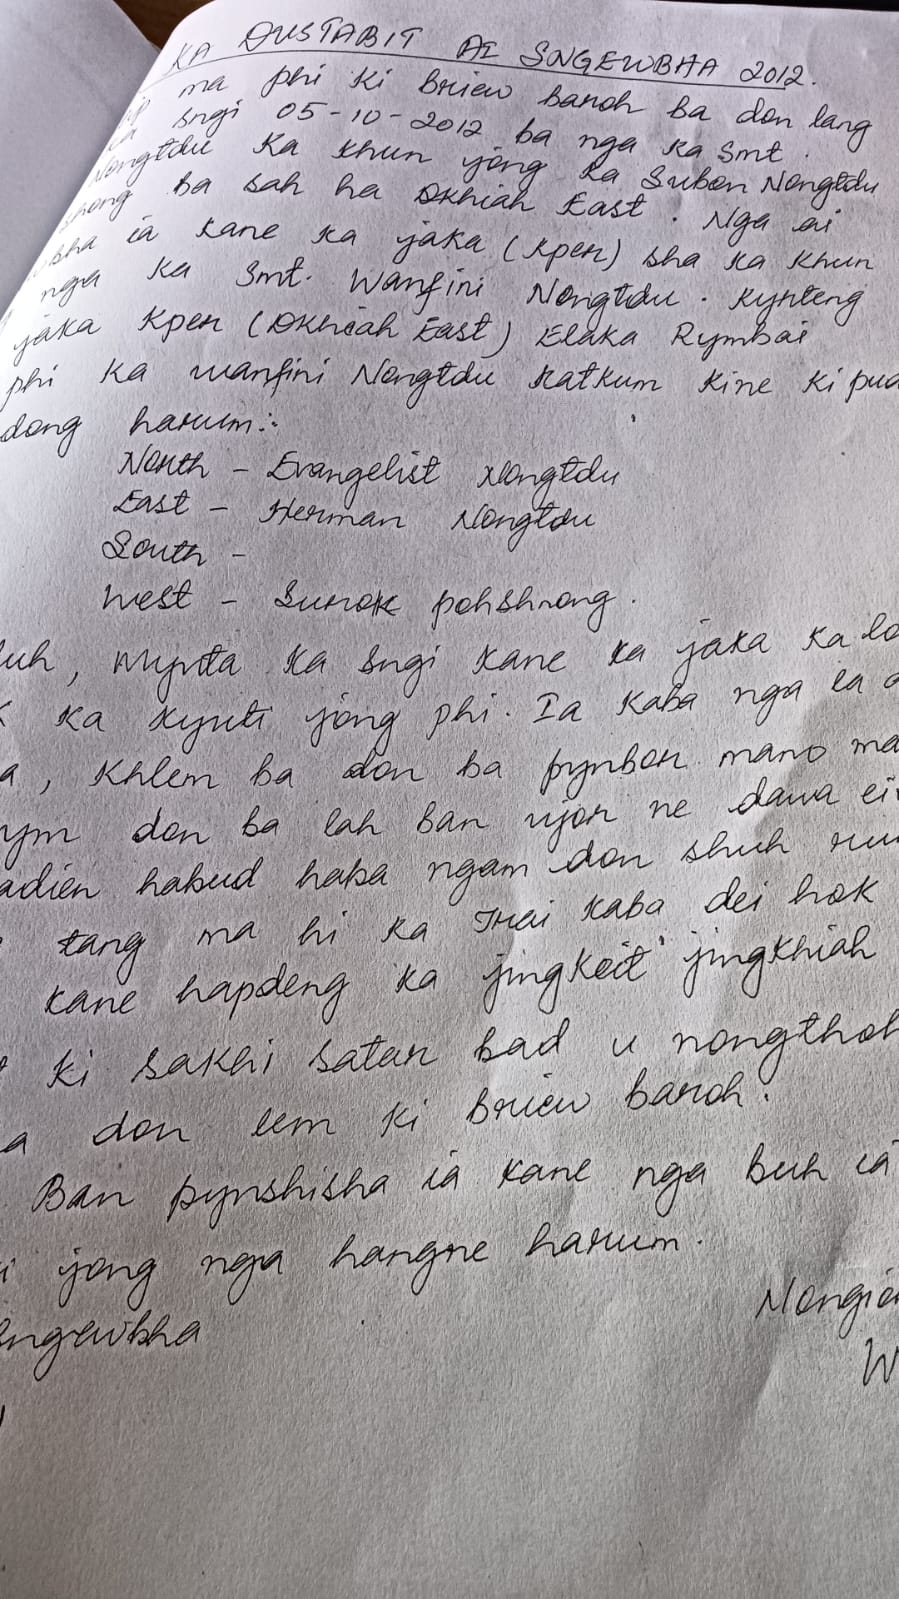 KA DUSTABIT AI SNGEWBHA 2012.
ma phi ki briew baroh ba don lang
sngi 05-10-2012 ba nga ka Smt.
Nongtdu ka khun jong ka Suben Nongtdu
shong ba sah ha Okhiah East. Nga ai
ia kane ka jaka (kper) sha ka khun
nga ka Smt. Wanfini Nongtdu. Kynteng
jaka kper (Okhiah East) Elaka Rymbai
phi ka wanfini Nongtdu katkum kine ki
dong harum:-
North - Evangelist Nongtdu
East - Herman Nongtdu
South -
West - Surok pohshrong.
mynta ka sngi kane ka jaka ka
ka kynti jong phi. Ia kaba nga la
khlem ba don ba pynbor mano
don ba lah ban ujor ne dawa
habud haba ngam don shuh
tang ma hi ka Trai kaba dei hok
kane hapdeng ka jingkoit jingkhiah
ki sakhi satar bad u
don lem ki briew baroh.
Ban pynshisha ia kane nga buh ia
jong nga hangne harum.